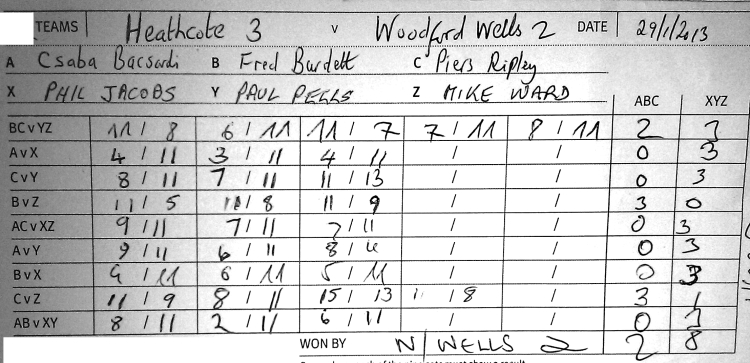 TEAMS Heathcote 3 v Woodford Wells 2 DATE 29/1/2013
A Csaba Bacsardi B Fred Burdett C Piers Ripley
X PHIL JACOBS Y PAUL PELLS Z MIKE WARD ABC XYZ
BC v YZ 11 / 8 6 / 11 11 / 7 7 / 11 8 / 11 2 3
A v X 4 / 11 3 / 11 4 / 11 / / 0 3
C v Y 8 / 11 7 / 11 11 / 13 / / 0 3
B v Z 11 / 5 11 / 8 11 / 9 / / 3 0
AC v XZ 9 / 11 7 / 11 7 / 11 / / 0 3
A v Y 9 / 11 6 / 11 8 / 11 / / 0 3
B v X 9 / 11 6 / 11 5 / 11 / / 0 3
C v Z 11 / 9 8 / 11 15 / 13 11 / 8 / 3 1
AB v XY 8 / 11 2 / 11 6 / 11 / / 0 3
WON BY W/WELLS 2 2 8